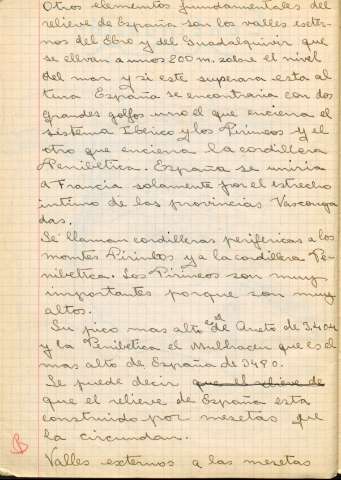 Otros elementos fundamentales del
relieve de España son los valles exter-
nos del Ebro y del Guadalquivir que
se elevan a unos 200 m. sobre el nivel
del mar y si este superara esta al
tura España se encontraria con dos
grandes golfos uno el que encierra el
sistema Ibérico y los Pirineos y el
otro que encierra la cordillera
Penibética. España se uniria
a Francia solamente por el estrecho
istimo de las provincias Vasconga
das.
Se llaman cordilleras perifericas a los
montes Pirineos y a la cordillera Pe-
nibetica. Los Pirineos son muy
importantes porque son muy
altos.
Su pico mas alto es el de Aneto de 3.404
y la Penibética el Mulhacen que es el
mas alto de España de 3480.
Se puede decir que el relieve de
que el relieve de España esta
construido por mesetas que
la circundan.
Valles externos a las mesetas